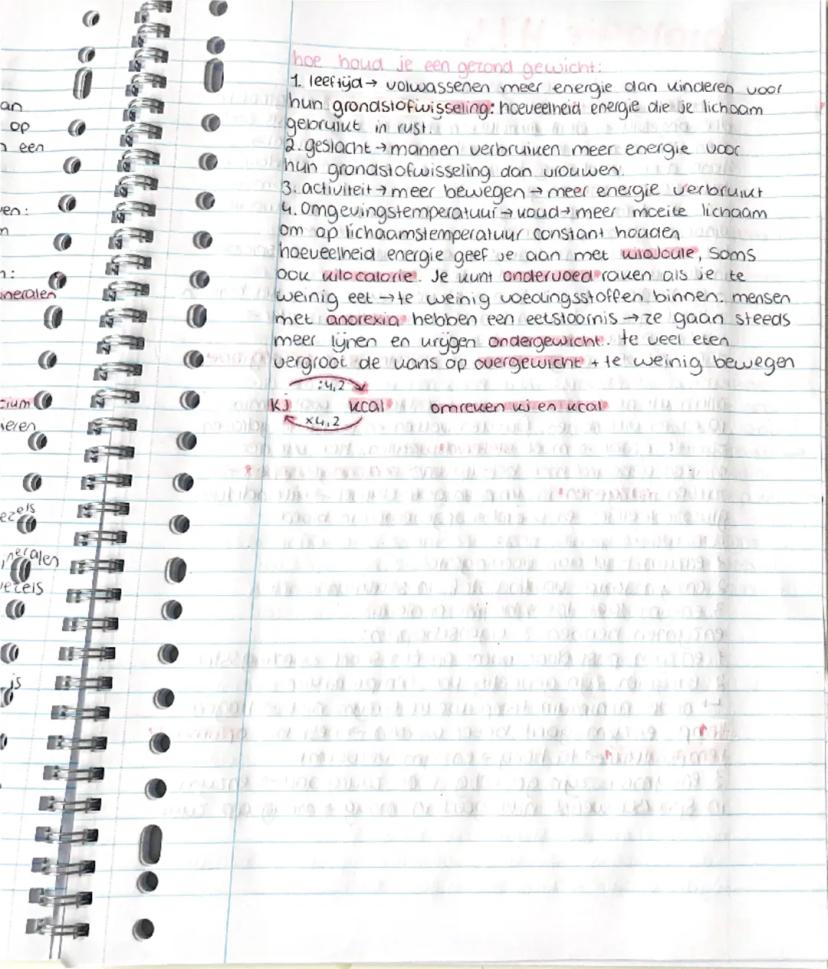 an
op
een
en:
n
n:
neralen
cium
eren
ezels
neralen
vezels
js
hoe houd je een gezond gewicht:
1. leeftijd → volwassenen meer energie dan kinderen voor
hun grondstofwisseling: hoeveelheid energie die je lichaam
gebruikt in rust.
2. geslacht → mannen verbruiken meer energie voor
hun grondstofwisseling dan vrouwen.
3. activiteit → meer bewegen → meer energie verbruikt
4. omgevingstemperatuur → koud → meer moeite lichaam
om op lichaamstemperatuur constant houden
hoeveelheid energie geef je aan met kilojoule, soms
ook kilocalorie. Je kunt ondervoed raken als je te
weinig eet → te weinig voedingsstoffen binnen. mensen
met anorexia hebben een eetstoornis → ze gaan steeds
meer lijnen en krijgen ondergewicht. te veel eten
vergroot de kans op overgewicht + te weinig bewegen
:4,2
kj kcal omreken kj en kcal
x4,2